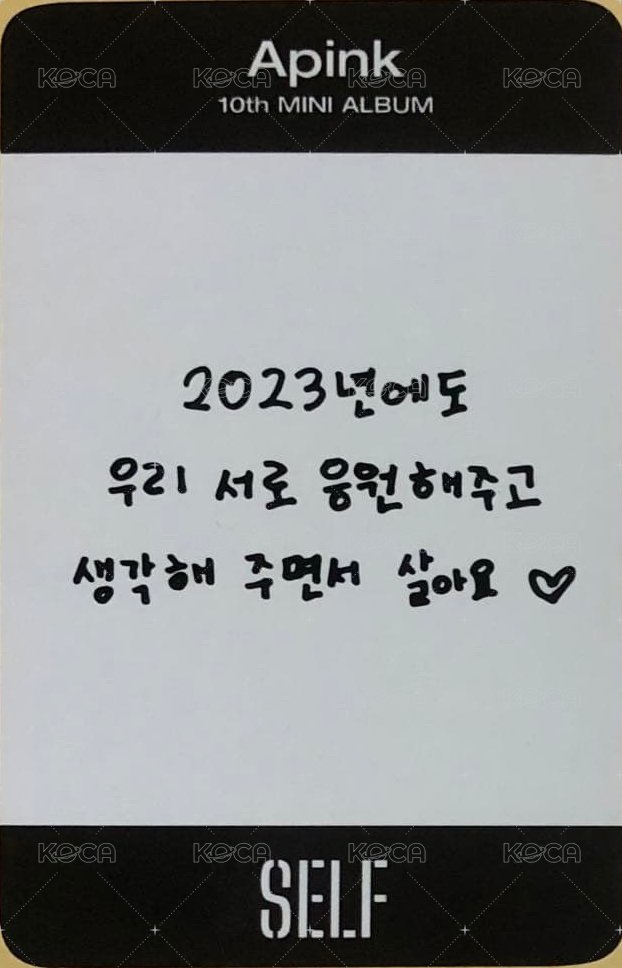 KOCA KOCA KOCA KOCA
Apink
10th MINI ALBUM
2023년에도
우리 서로 응원해주고
생각해 주면서 살아요 ♡
KOCA KOCA KOCA KOCA
SELF